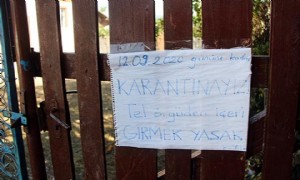 12.09.2020 gününe kadar
KARANTİNAYIZ
Tel örgüden içeri
GİRMEK YASAK